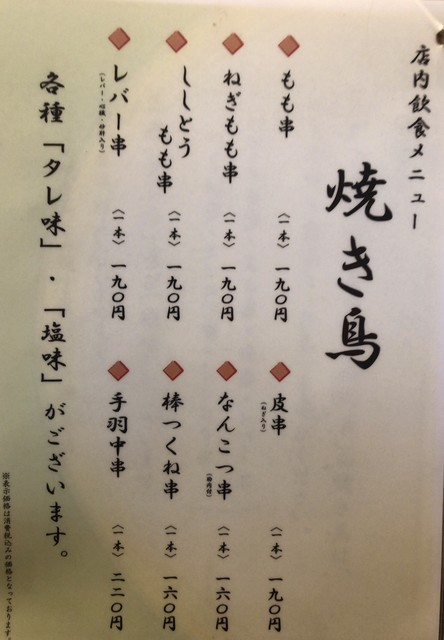 店内飲食メニュー
焼き鳥
もも串 〈一本〉 一九〇円
ねぎもも串 〈一本〉 一九〇円
ししとう
もも串 〈一本〉 一九〇円
レバー串 〈一本〉 一九〇円
(レバー・心臓・砂肝入り)
皮串 〈一本〉 一九〇円
(ねぎ入り)
なんこつ串 〈一本〉 一六〇円
棒つくね串 〈一本〉 一六〇円
手羽中串 〈一本〉 二二〇円
各種「タレ味」・「塩味」がございます。
※表示価格は消費税込みの価格となっております。